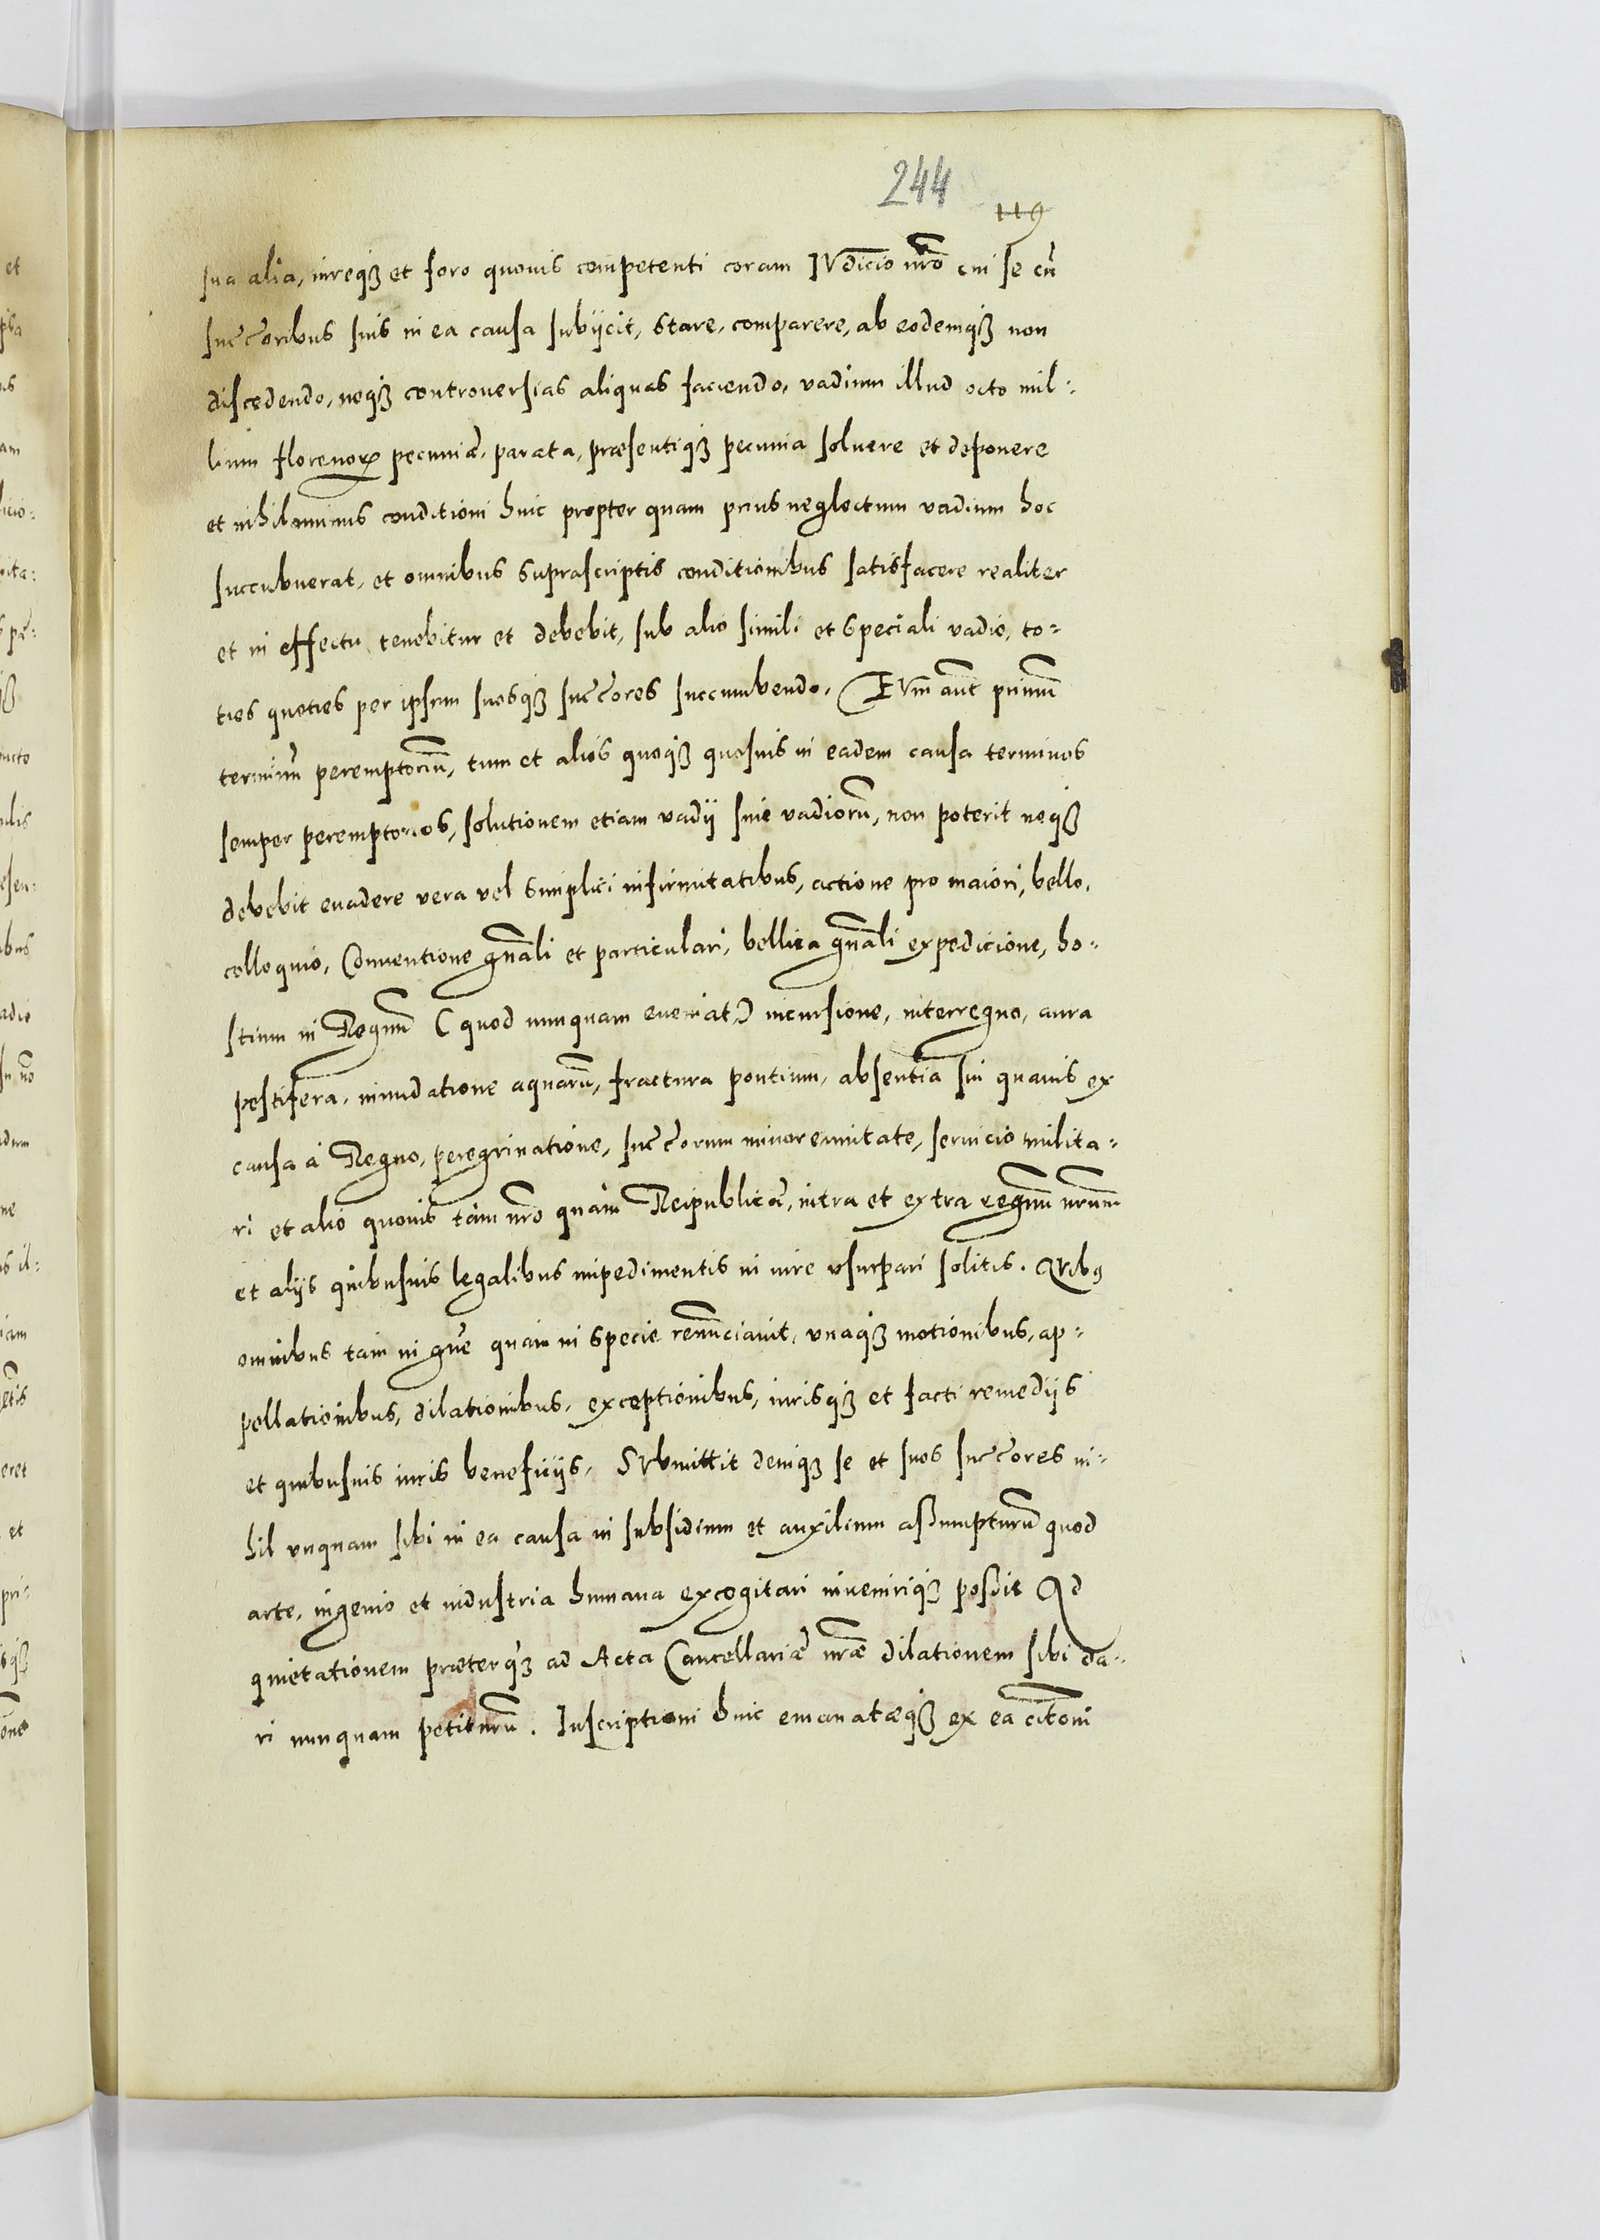 244
119
sua alia, iureq3 et foro quouis competenti coram IVdicio nr̃o cui se cũ
succ̃oribus suis in ea causa subijcit, stare, comparere, ab eodemq3 non
discedendo, neq3 controuersias aliquas faciendo, vadium illud octo mil-
lium florenorꝝ pecuniæ, parata, præsentiq3 pecunia soluere et deponere
et nihilominus conditioni huic propter quam prius neglectum vadium hoc
succubuerat, et omnibus suprascriptis conditionibus satisfacere realiter
et in effectu tenebitur et debebit, sub alio simili et speciali vadio, to-
ties quoties per ipsum suosq3 succ̃ores succumbendo. EVm aut̃ primũ
terminũ peremptoriũ, tum et alios quoq3 quosuis in eadem causa terminos
semper peremptorios, solutionem etiam vadij siue vadiorũ, non poterit neq3
debebit euadere vera vel simplici infirmitatibus, actione pro maiori, bello,
colloquio, Conuentione gñali et particulari, bellica gñali expedicione, ho-
stium in Regnũ (quod nunquam eueniat) incursione, interregno, aura
pestifera, inundatione aquarũ, fractura pontium, absentia sui quauis ex
causa à Regno, peregrinatione, succ̃orum minorennitate, seruicio milita-
ri et alio quouis tam nr̃o quàm Reipublicæ, intra et extra regnũ nr̃um
et alijs quibusuis legalibus impedimentis in iure vsurpari solitis. QVibꝯ
omnibus tam in gñe quàm in specie renũnciauit, vnaq3 motionibus, ap-
pellationibus, dilationibus, exceptionibus, iurisq3 et facti remedijs
et quibusuis iuris beneficijs. SVbmittit deniq3 se et suos succ̃ores ni-
hil vnquam sibi in ea causa in subsidium et auxilium aßumpturũ quod
arte, ingenio et industria humana excogitari inueniriq3 poßit Ad
quietationem præterq̃3 ad Acta Cancellariæ nr̃æ dilationem sibi da-
ri nunquam petiturũ. Inscriptioni huic emanatæq3 ex ea cit̃oni